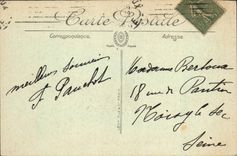 Carte Postale
Correspondance
Adresse
meilleur souvenir
Madame Bertoux
18 rue de Pantin
Noisy le Sec
Seine